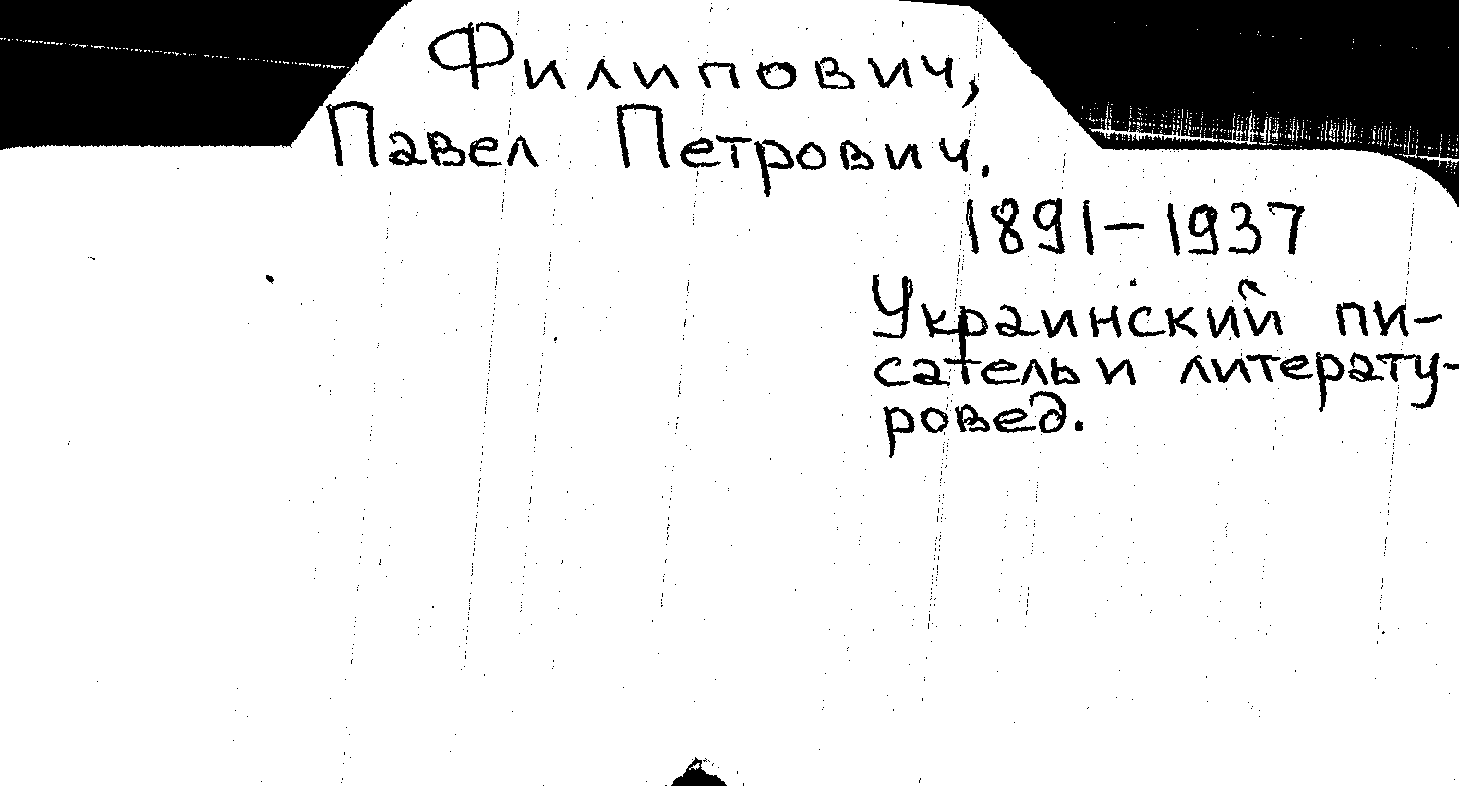 Филипович,
Павел Петрович.
1891–1937
Украинский пи-
сатель и литерату-
ровед.